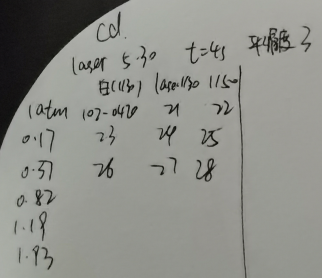 cd.
laser 5.30 t=4s 平偏度 3
白(1130) laser1130 1150
1atm 107-0420 21 22
0.17 23 24 25
0.37 26 27 28
0.82
1.19
1.93